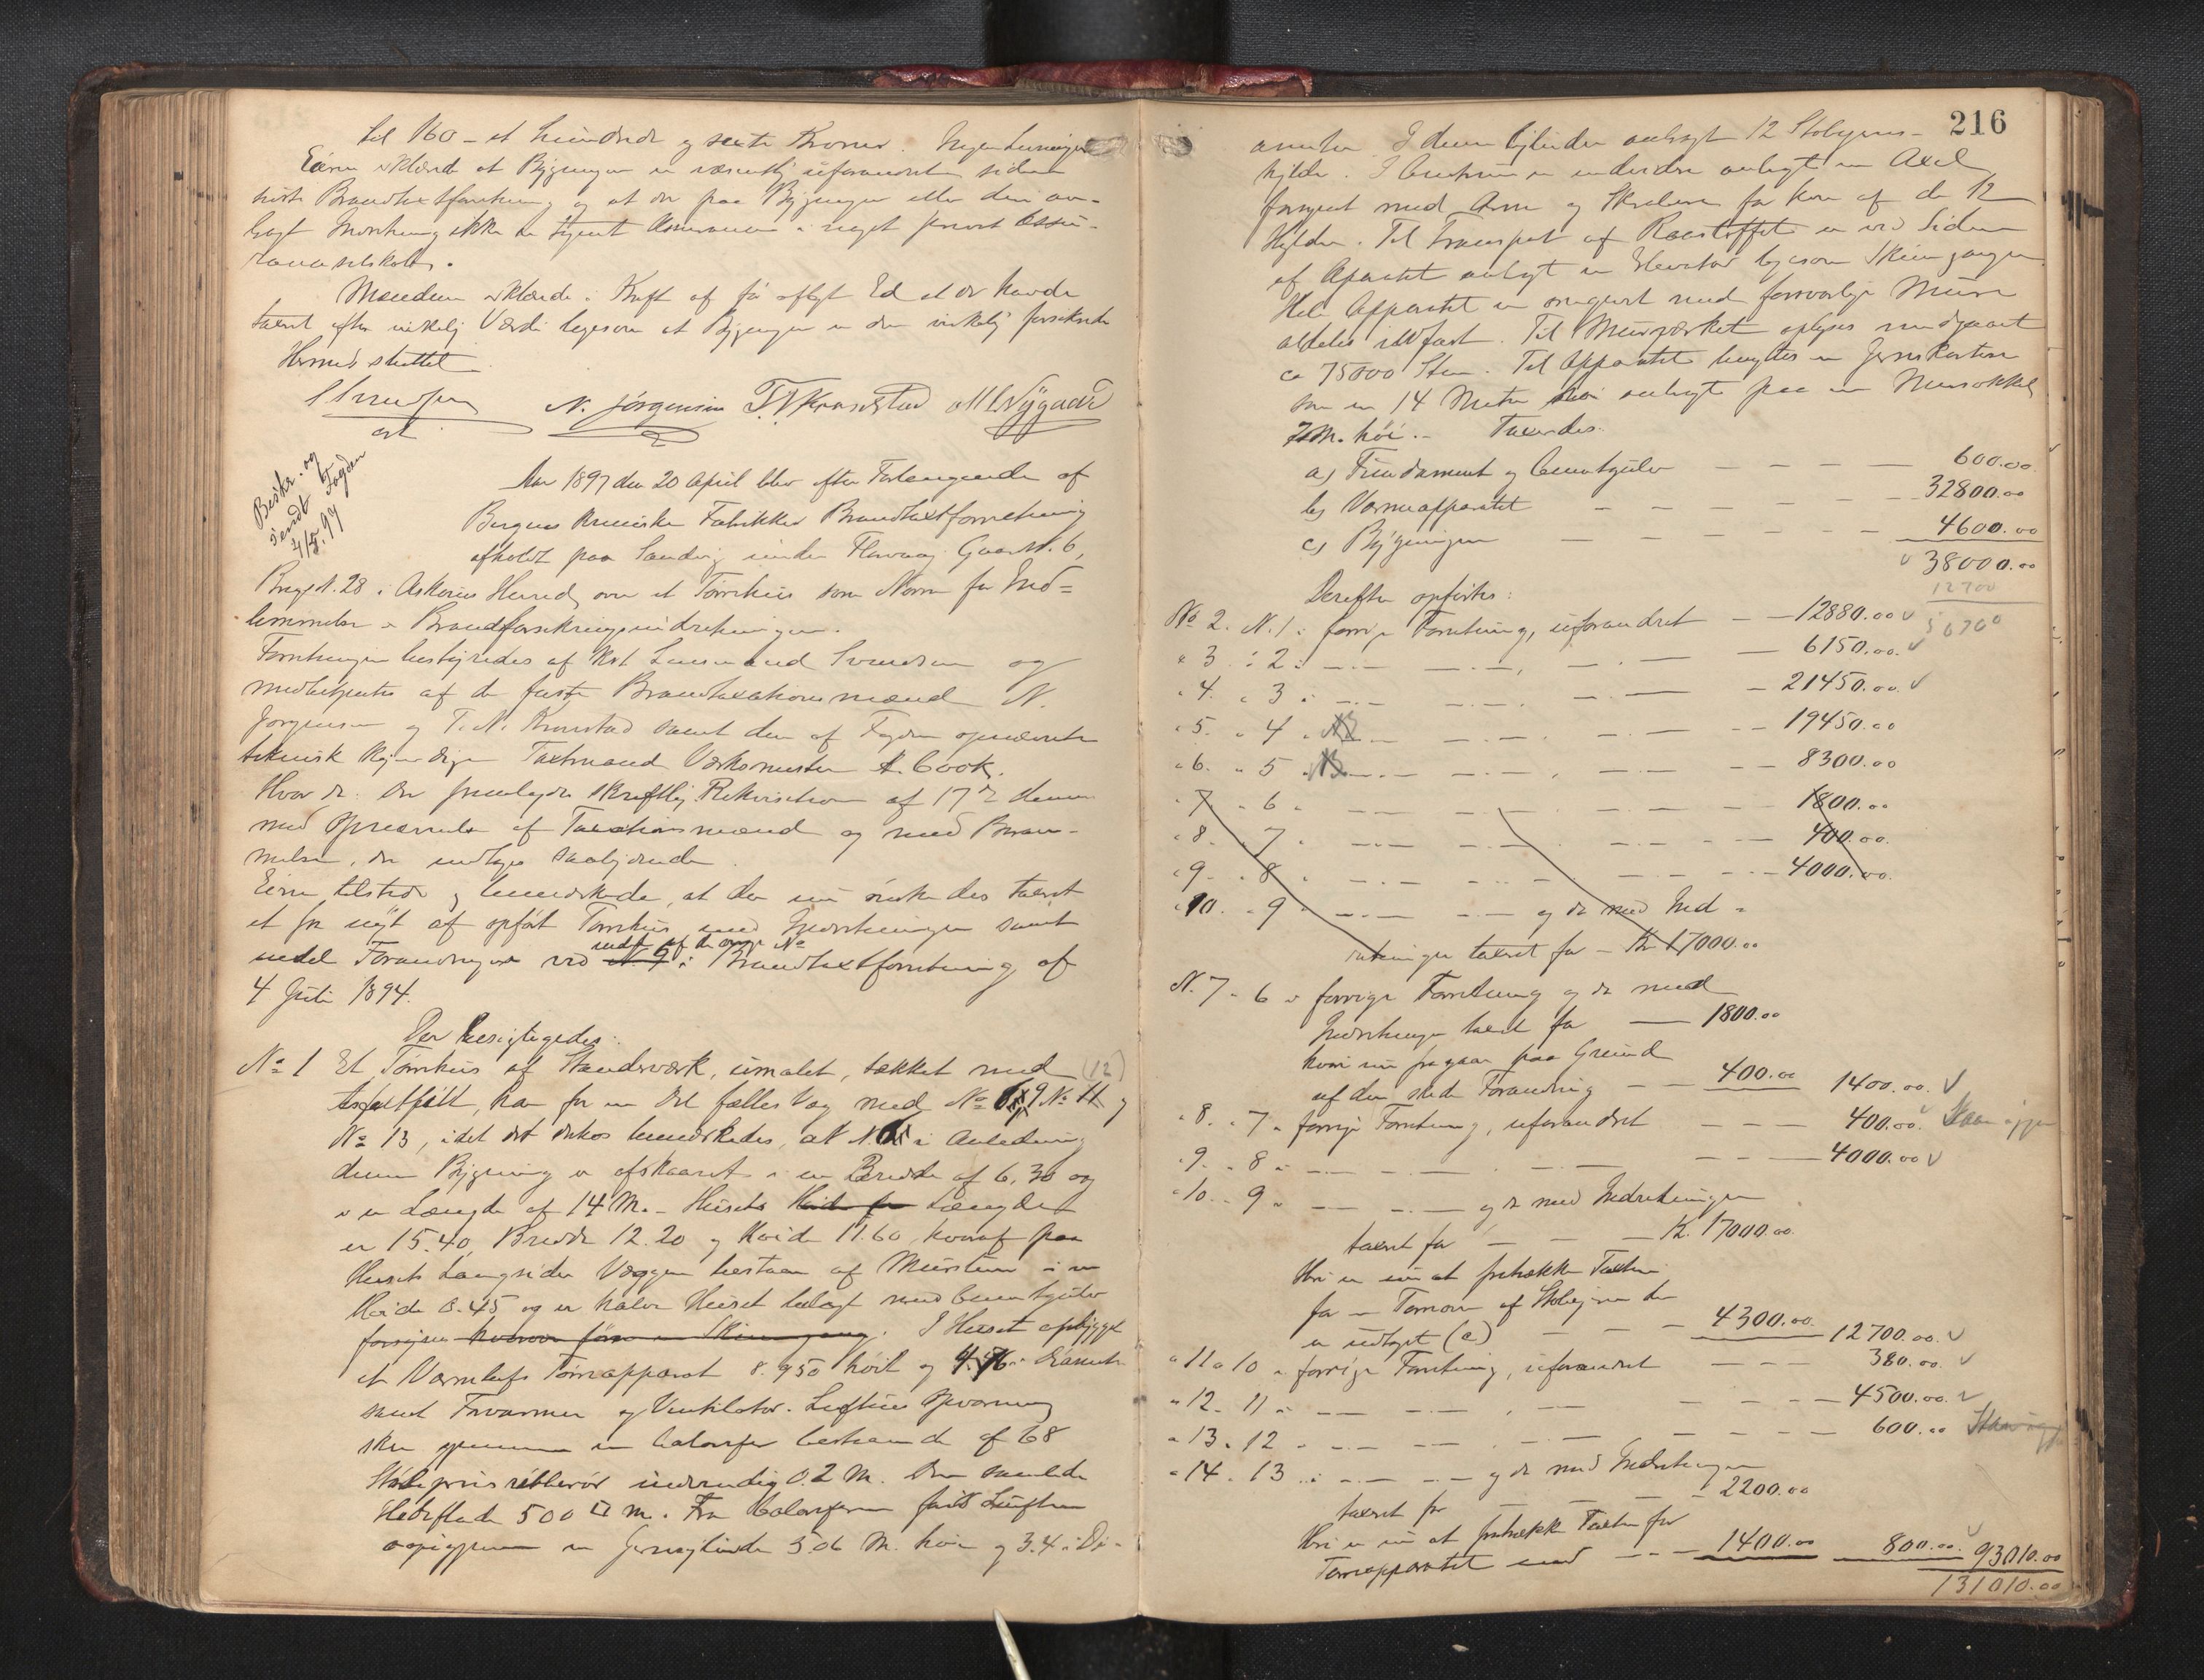 til 160 - et hundrede og sexti Kroner. Ingen Løsninger
Eieren erklærede at Bygningen er væsentlig uforandret siden
sidste Brandtaxtforretning og at der paa Bygningen eller den an-
bragt Indretning ikke er tegnet Assurance i noget privat Assu-
ranceselskab.
Mændene erklærede i Kraft af før aflagt Ed at de havde
taxeret efter virkelig Værdi ligesom at Bygningen er den virkelig
Hermed sluttet
N. Jørgensen T. N. Kronstad M L Nygaard
Beskr. og
sendt Fogden
4/5.97
Aar 1897 den 20 April blev efter Forlangende af
Bergens Kemiske Fabrikker Brandtaxtforretning
afholdt paa Sandvig under Flavaag Gaards N. 6,
Brugs N. 28 i Askøens Herred over et Tørrehus som Norm for Ind=
lemmelse i Brandforsikringsindretningen.
Forretningen bestyredes af Kst. Lensmand Svendsen og
medbetjentes af de faste Brandtaxationsmænd N.
Jørgensen og T. N. Kronstad samt den af Fogden opnævnte
teknisk kyndige Taxtmand Værksmester A. Cook.
Hvor da: Der fremlagdes skriftlig Rekvisition af 17de dennes
med Opnævnelse af Taxationsmænd og med Beram-
melse, der indtages saalydende
Eieren tilstede og bemærkede, at der nu ønskedes taxeret
et fra nyt af opført Tørrehus med Indretninger samt
endel Forandringer ved N 9 i Brandtaxtforretning af
endt af de øvrige No
4 Juli 1894.
Der besigtigedes:
No 1 Et Tørrehus af Standerværk, umalet, tækket med (12)
Asfaltfilt, har for en Del fælles Væg med No 9 No 11 og
No 13, idet det ønskes bemærkedes, at N. i Anledning
denne Bygning er afskaaret i en Bredde af 6,30 og
i en Længde af 14 M. - Husets Høide for Længde
er 15.40, Bredde 12.20 og Høide 11.60, hvoraf paa
Husets Langsider Væggen bestaar af Mursten i en
Høide 0.45 og er halve Huset belagt med Cementgulv
forsynet hvorover fører en Skinnegang. I Huset opbygget
et Varmlufts Tørreapparat 8.950 høit og 4.76 i Diameter
samt Forvarmer og Ventilator. Luftens Opvarmning
sker gjennem en Calorifer bestaaende af 68
Støbejernsribberør indvendig 0.2 M. Den samlede
Hedeflade 500 □ m. Fra Caloriferen føres Luften
opigjennem en Jerncylinder 5.06 M. høi og 3.4 i Di-
216
ameter I denne Cylinder anbragt 12 Støbejerns-
hylder. I Centrum er endvidere anbragt en Axel
forsynet med Arme og Skrabere for hver af de 12
Hylder. Til Transport af Raastoffet er ved Siden
af Apparatet anbragt en Elevator ligesom Skinnegange
Hele Apparatet er omgivet med forsvarlige Mure
aldeles ildfast. Til Murværket oplyses medgaaet
ca 75000 Sten. Til Apparatet benyttes en Jernskorsten
som er 14 Meter høi anbragt paa en Mursokkel
7 M. høi. - Taxerdes.
a) Fundament og Cementgulv — — — — 600.00
b) Varmeapparatet — — — — — 32800.00
c) Bygningen — — — — — 4600.00
38000.00
12700
Derefter opførtes:
No 2. N. 1 i forrige Forretning, uforandret — 12880.00
" 3 " 2 " — — — — 6150.00
" 4. " 3 " — — — — 21450.00
" 5. " 4 " — — — — 19450.00
" 6. " 5 " — — — — 8300.00
" 7 " 6 " — — — — 1800.00
" 8. " 7 " — — — — 400.00
" 9 - " 8 " — — — — 4000.00
" 10. " 9 " — — — og da med Ind-
retninger taxeret for — Kr 17000.00
N. 7 - 6 i forrige Forretning og da med
Indretninger taxeret for — 1800.00
hvori nu fragaar paa Grund
af den skede Forandring — 400.00 1400.00
" 8. " 7 " forrige Forretning, uforandret — — — 400.00
" 9. " 8 " — — — — 4000.00
" 10. " 9 " — — — og da med Indretninger
taxeret for — — — K. 17000.00
Heri er nu at fratrække Taxten
for en Tørreovn af Støbejern der
er udtaget (e) — — — 4300.00 12700.00
" 11 " 10 " forrige Forretning, uforandret — — — 380.00
" 12. 11 " — — — — 4500.00
" 13. 12 " — — — — 600.00
" 14. 13 " — — — og da med Indretninger
taxeret for — — — 2200.00
Heri er nu at fratrække Taxten for
Tørreapparatet med — — — 1400.00 800.00 93010.00
131010.00